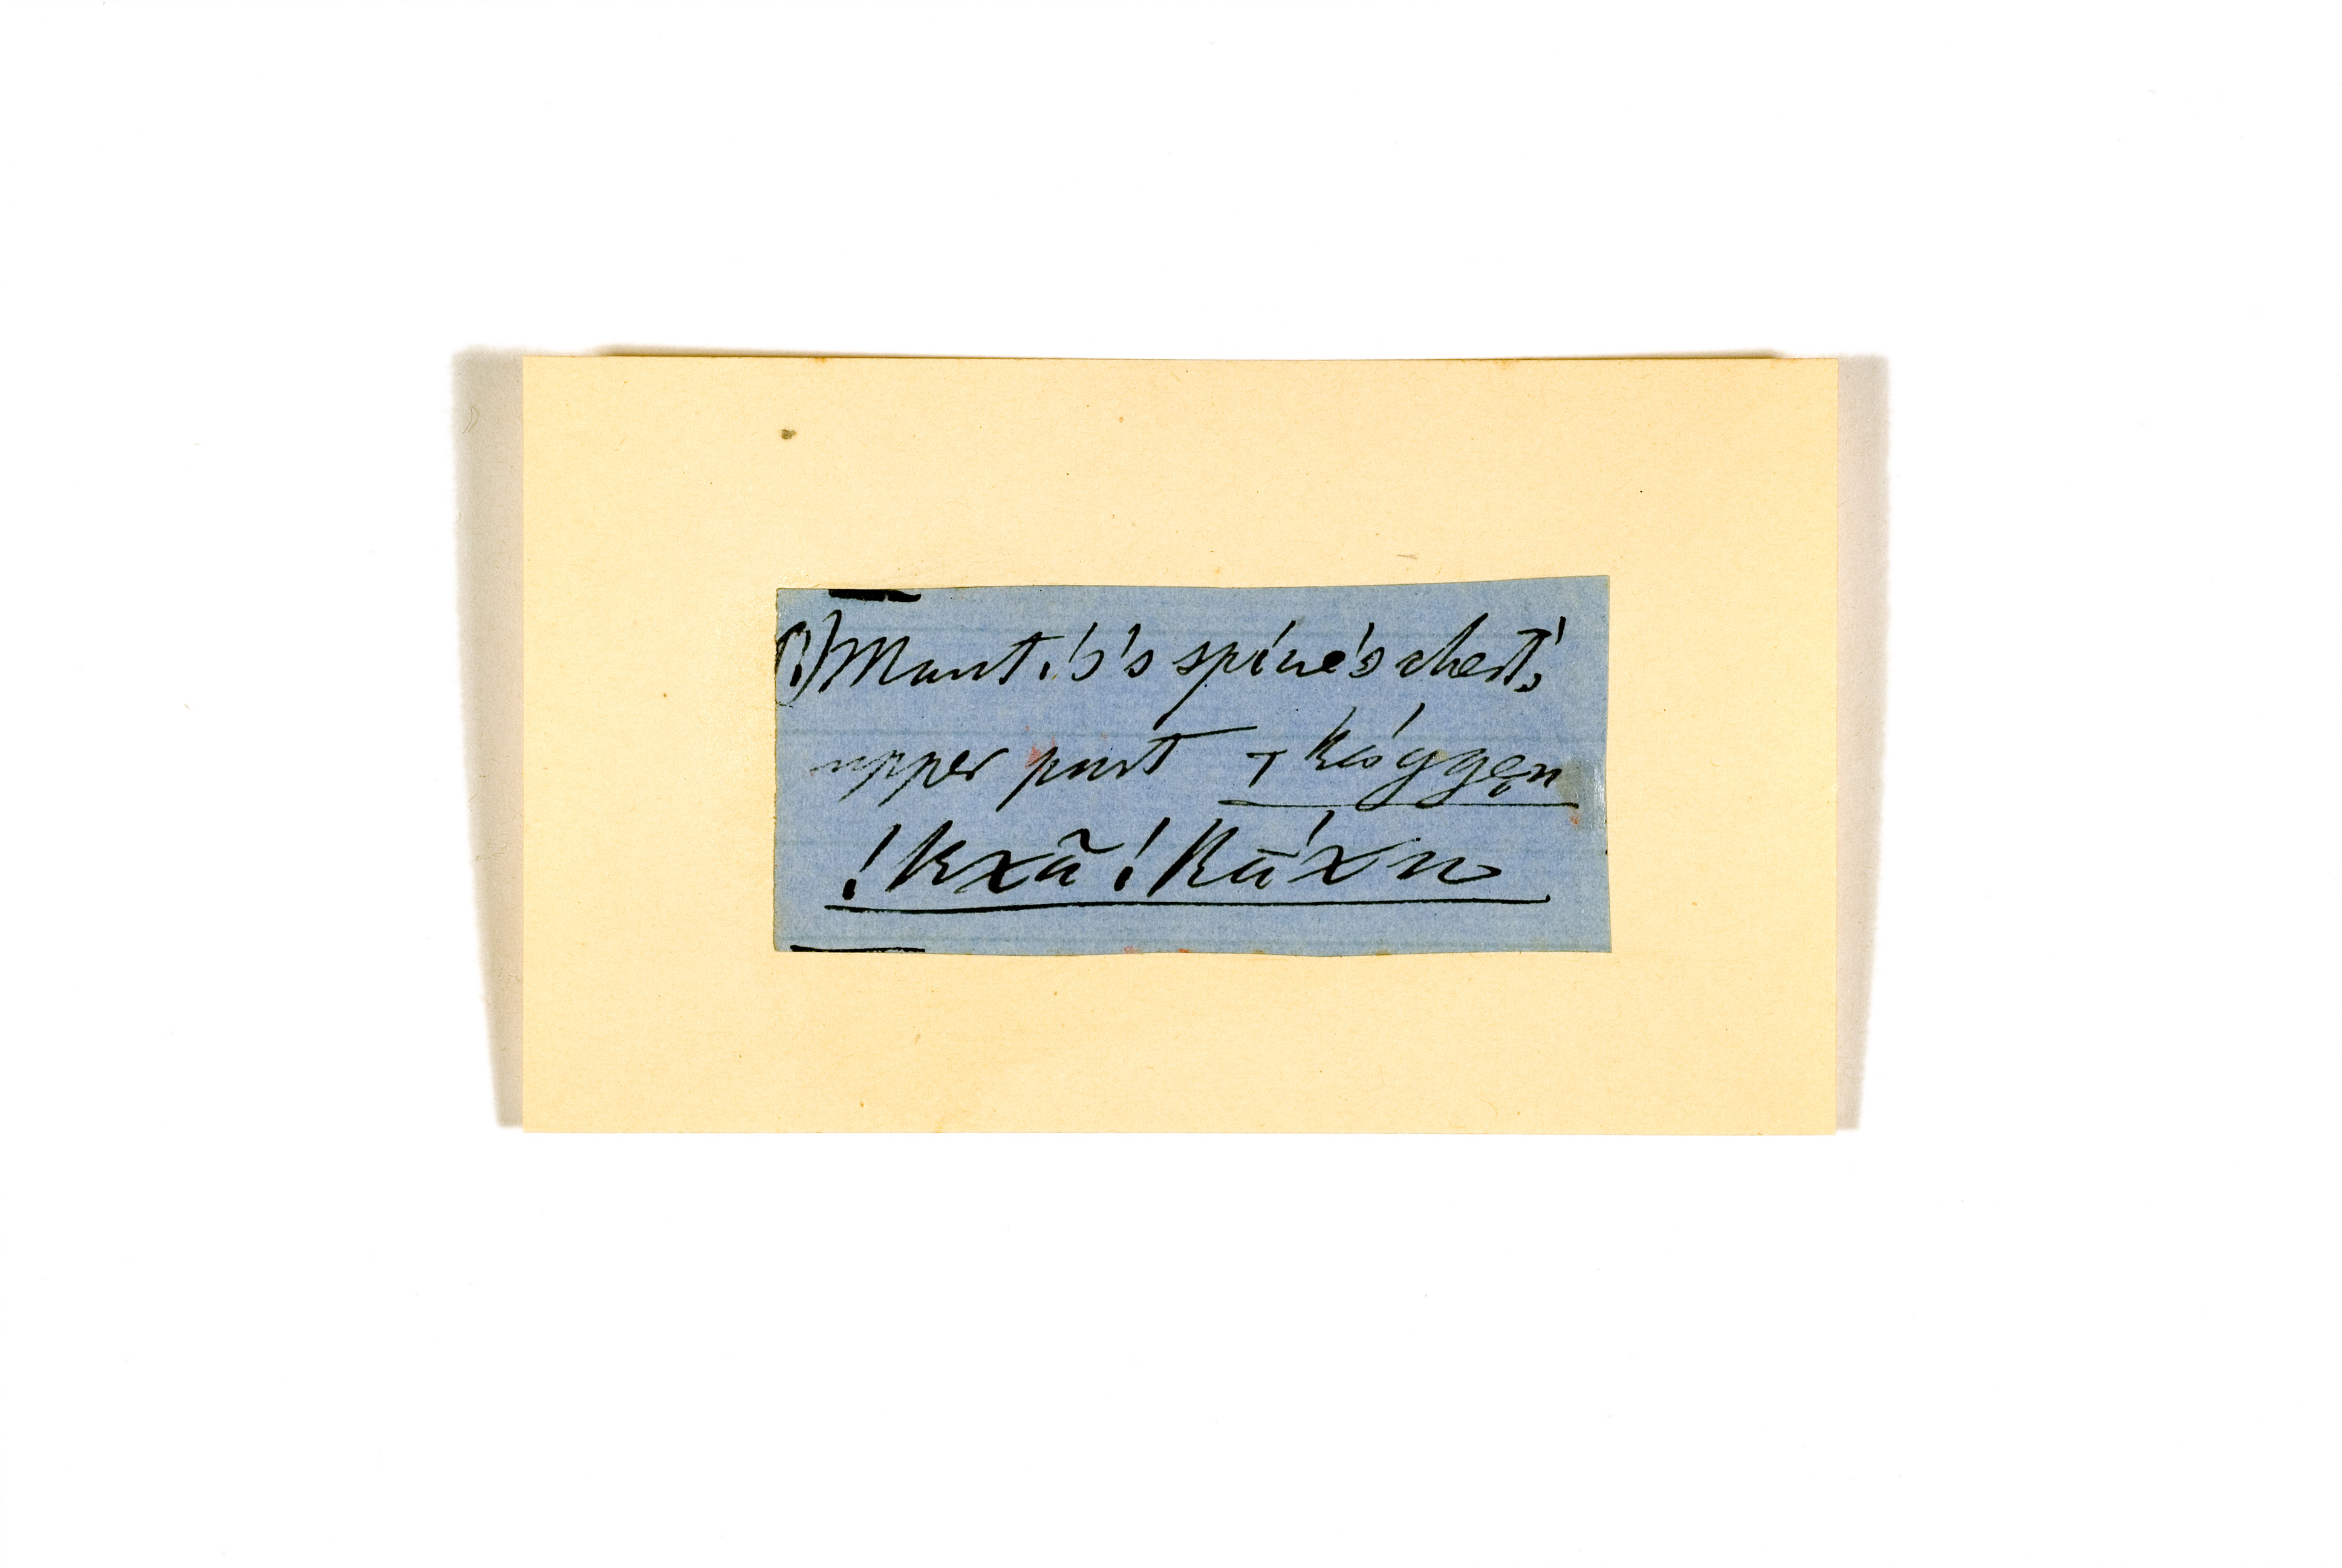 1.) Mantis's spine's chest's
upper part ⊤kággen
!kxã !kā́xn